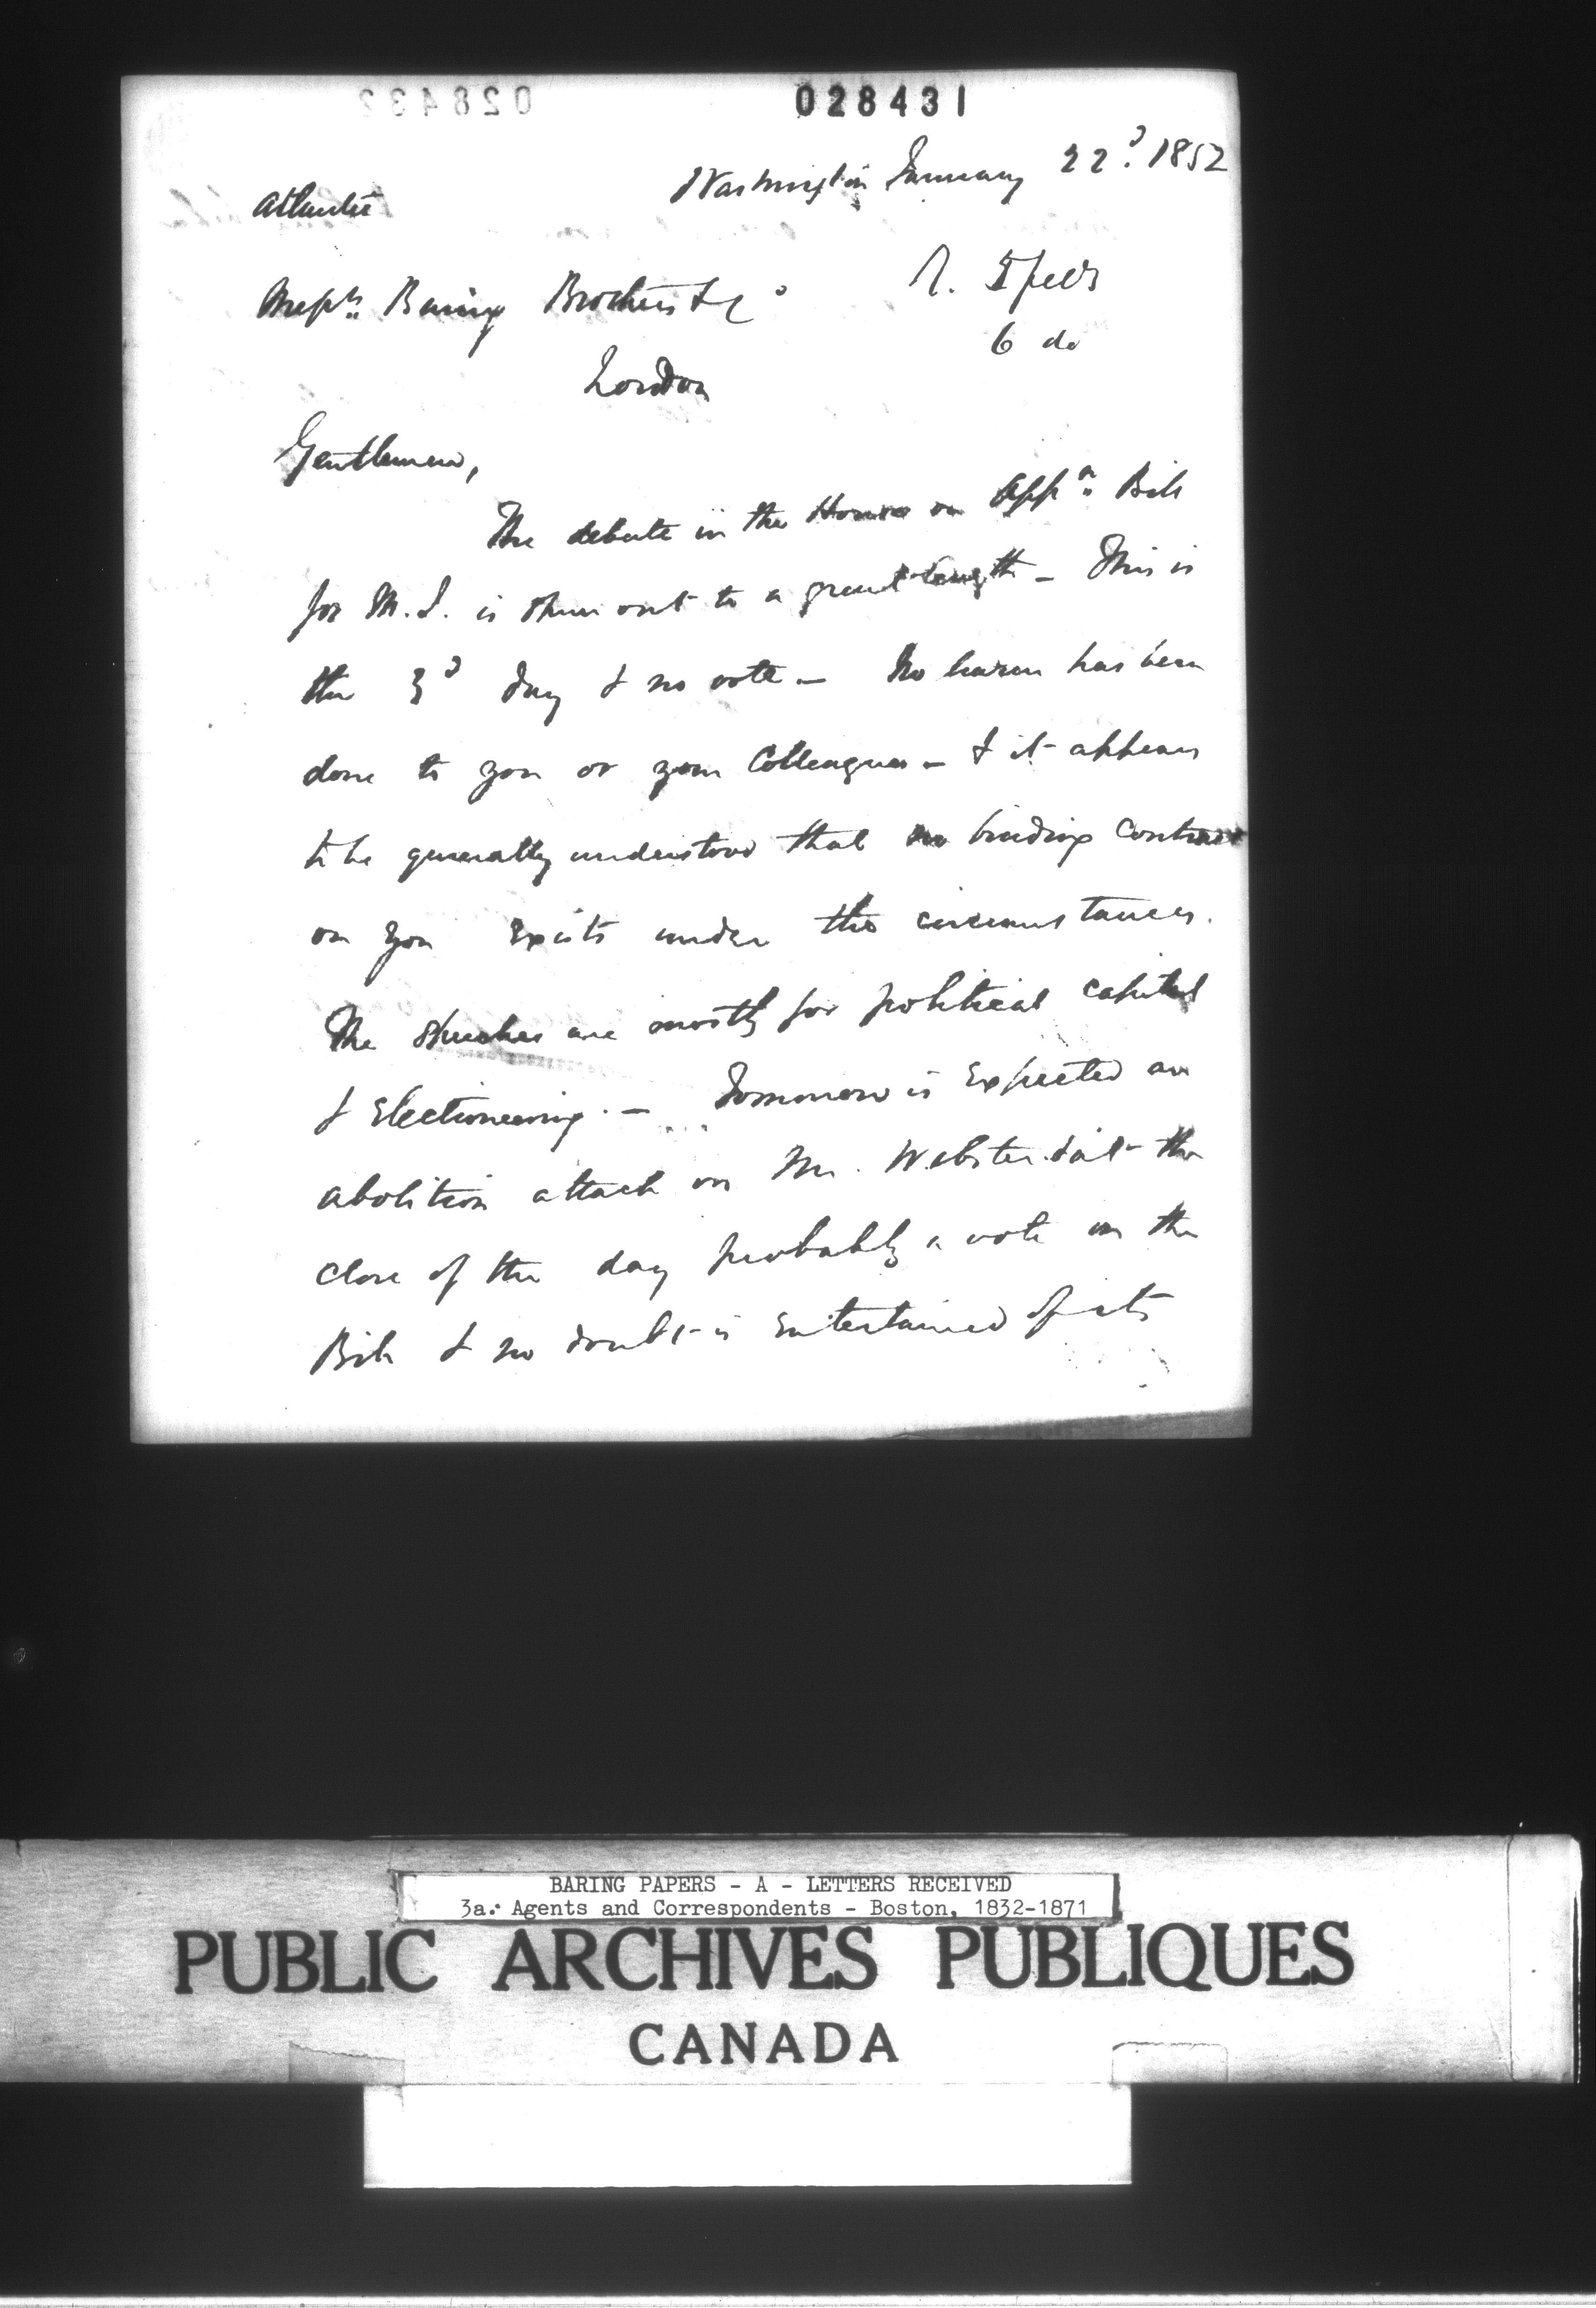 028431
028432
Washington January 22d. 1852
Atlantic
Messrs. Baring Brothers & Co
R. 5 Feby
6 do
London
Gentlemen,
The debate in the House on Appn. Bill
for M.I. is spun out to a great length - This is
the 3d day & no vote - No harm has been
done to you or your Colleagues - & it appears
to be generally understood that no binding Contract
on you exists under the circumstances.
The speeches are mostly for political capital
& Electioneering. - Tomorrow is Expected an
abolition attack on Mr. Webster & at the
close of the day probably a vote on the
Bill & no doubt is Entertained of its
BARING PAPERS - A - LETTERS RECEIVED
3a. Agents and Correspondents - Boston, 1832-1871
PUBLIC ARCHIVES PUBLIQUES
CANADA